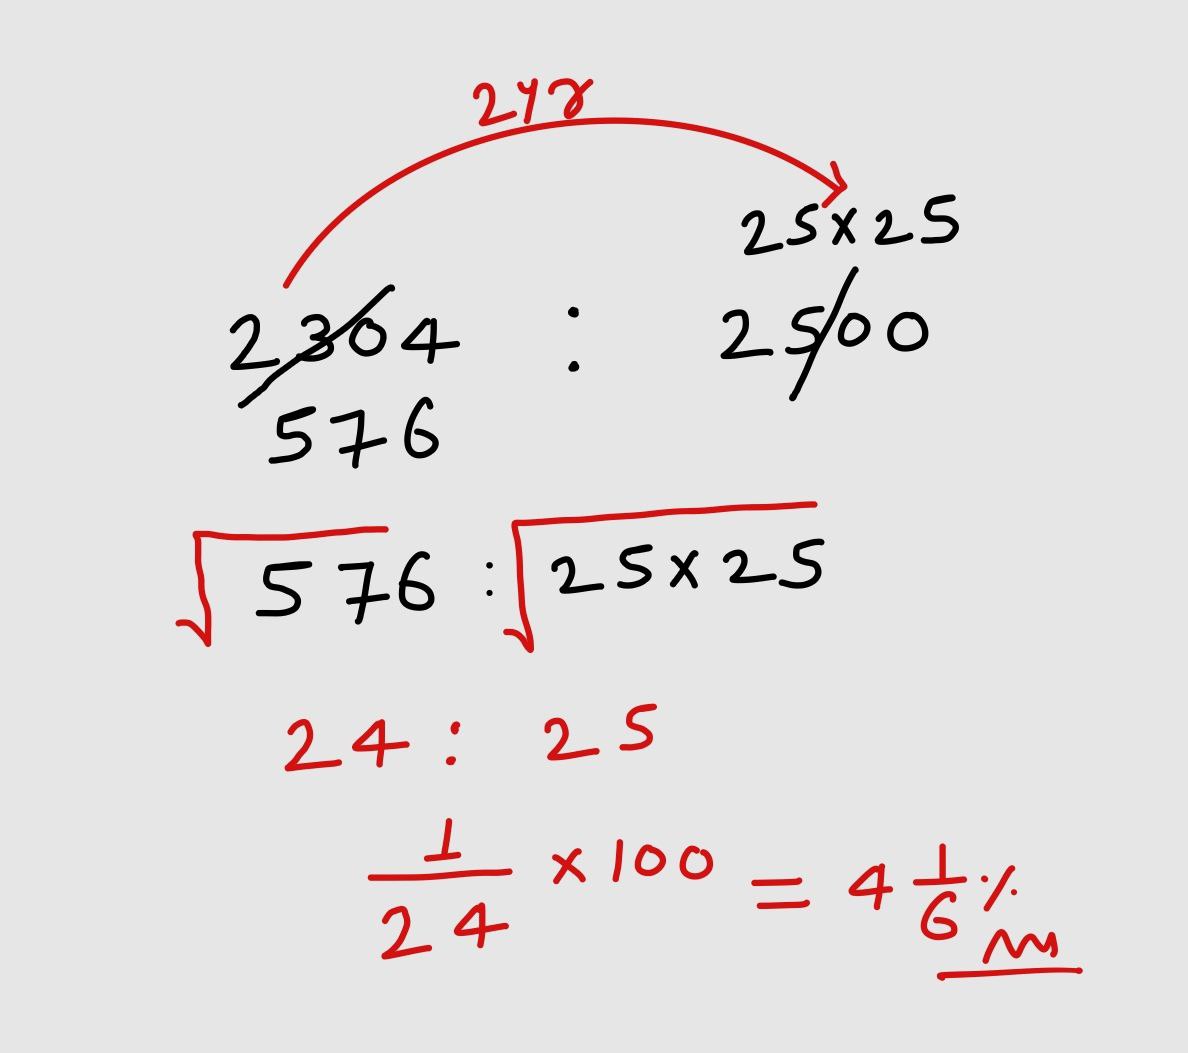 2yr
25x25
2304 : 2500
576
√576 : √25x25
24 : 25
1/24 x 100 = 4 1/6 %